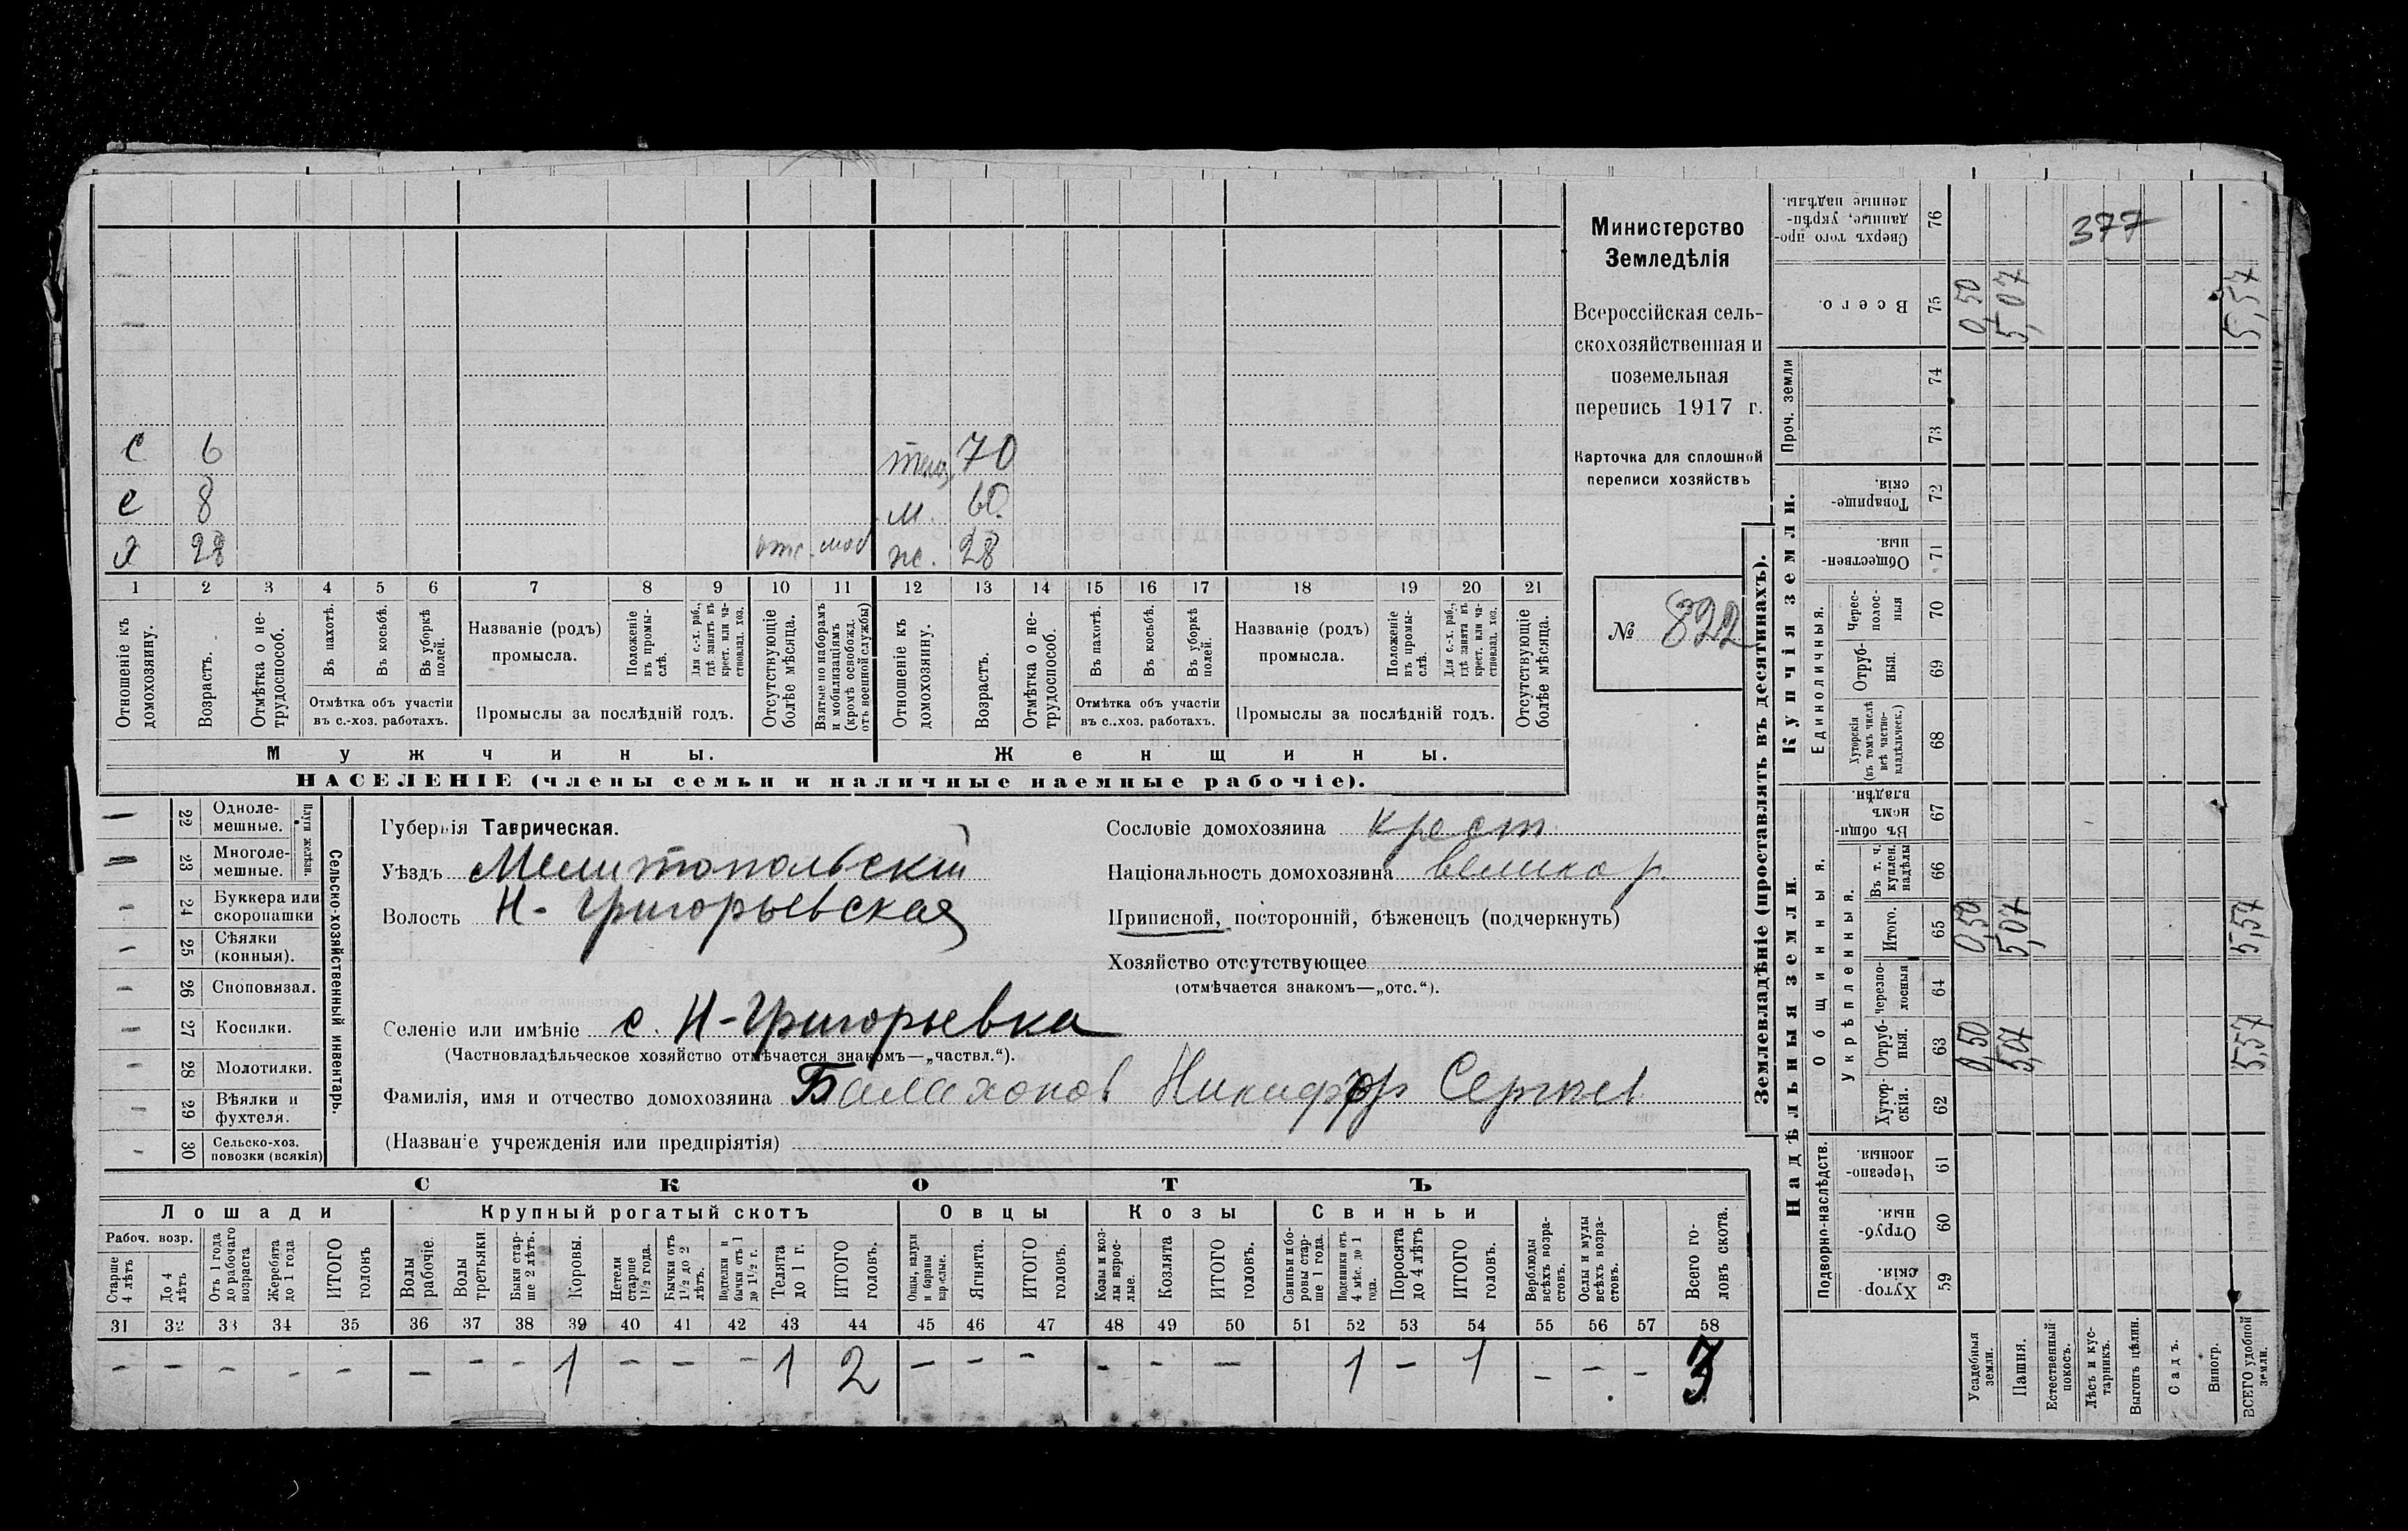 377
Министерство
Земледѣлія
Всероссійская сель-
скохозяйственная и
поземельная
перепись 1917 г.
Карточка для сплошной
переписи хозяйствъ
№ 822
с 6 70
с 8 м. 60.
х 28 отс. моб ж. 28
1 2 3 4 5 6 7 8 9 10 11 12 13 14 15 16 17 18 19 20 21
Отношеніе къ домохозяину.
Возрастъ.
Отмѣтка о не-трудоспособ.
Въ пахотѣ.
Въ косьбѣ.
Въ уборкѣ полей.
Отмѣтка объ участіи
въ с.-хоз. работахъ.
Названіе (родъ)
промысла.
Положеніе въ промы-слѣ.
Для с.-х. раб., гдѣ занятъ въ крест. или ча-стновлад. хоз.
Промыслы за послѣдній годъ.
Отсутствующіе болѣе мѣсяца.
Взятые по наборамъ и мобилизаціямъ (кромѣ освобожд. отъ военной службы)
Отношеніе къ домохозяину.
Возрастъ.
Отмѣтка о не-трудоспособ.
Въ пахотѣ.
Въ косьбѣ.
Въ уборкѣ полей.
Отмѣтка объ участіи
въ с..хоз. работахъ.
Названіе (родъ)
промысла.
Положеніе въ промы-слѣ.
Для с.-х. раб., гдѣ занята въ крест. или ча-стновлад. хоз.
Промыслы за послѣдній годъ.
Отсутствующіе болѣе мѣсяца.
Мужчины. Женщины.
НАСЕЛЕНІЕ (члены семьи и наличные наемные рабочіе).
Сельско-хозяйственный инвентарь.
Плуги желѣзн.
— 22 Одноле-мешные.
— 23 Многоле-мешные.
— 24 Буккера или скоропашки
— 25 Сѣялки (конныя).
— 26 Сноповязал.
— 27 Косилки.
— 28 Молотилки.
— 29 Вѣялки и фухтеля.
— 30 Сельско-хоз. повозки (всякія)
Губернія Таврическая.
Уѣздъ Мелитопольскій
Волость Н-Григорьевская
Селеніе или имѣніе с. Н-Григорьевка
(Частновладѣльческое хозяйство отмѣчается знакомъ—„частвл.“).
Фамилія, имя и отчество домохозяина Балахонов Никифор Сергѣев
(Названіе учрежденія или предпріятія)
Сословіе домохозяина крест.
Національность домохозяина великор.
Приписной, посторонній, бѣженецъ (подчеркнуть)
Хозяйство отсутствующее
(отмѣчается знакомъ—„отс.“).
СКОТЪ
Лошади Крупный рогатый скотъ Овцы Козы Свиньи
Рабоч. возр.
Старше 4 лѣтъ
До 4 лѣтъ
Отъ 1 года до рабочаго возраста
Жеребята до 1 года
ИТОГО головъ
Волы рабочіе.
Волы третьяки.
Быки стар-ше 2 лѣтъ.
Коровы.
Нетели старше 1½ года.
Бычки отъ 1½ до 2 лѣтъ.
Подтелки и бычки отъ 1 до 1½ г.
Телята до 1 г.
ИТОГО головъ.
Овцы, валухи и бараны взрослые.
Ягнята.
ИТОГО головъ.
Козы и коз-лы взрос-лые.
Козлята
ИТОГО головъ.
Свиньи и бо-ровы стар-ше 1 года.
Подсвинки отъ 4 мѣс. до 1 года.
Поросята до 4 лѣтъ
ИТОГО головъ.
Верблюды всѣхъ возра-стовъ.
Ослы и мулы всѣхъ возра-стовъ.
Всего го-ловъ скота.
31 32 33 34 35 36 37 38 39 40 41 42 43 44 45 46 47 48 49 50 51 52 53 54 55 56 57 58
— — — — — — — — 1 — — — 1 2 — — — — — — 1 — 1 — — — 3
Землевладѣніе (проставлять въ десятинахъ).
Купчія земли.
Надѣльныя земли
Сверхъ того про-данные, укрѣп-ленные надѣлы. 76
Всего. 75 0,50 5,07 5,57
Проч. земли 74 73
Товарище-скія. 72
Обществен-ныя. 71
Единоличныя.
Черес-полос-ныя 70
Отруб-ныя. 69
Хуторскія (въ томъ числѣ всѣ частно-владѣльческ.) 68
Общинныя.
Въ общин-номъ владѣн. 67
Укрѣпленныя.
Въ т. ч. куплен. надѣлы 66
Итого. 65 0,50 5,07 5,57
черезпо-лосныя 64
Отруб-ныя. 63 0,50 5,07 5,57
Хутор-скія. 62
Подворно-наслѣдств.
Черезпо-лосныя. 61
Отруб-ныя. 60
Хутор-скія. 59
Усадебныя земли.
Пашня.
Естественный покосъ.
Лѣсъ и кус-тарникъ.
Выгонъ цѣлин.
Садъ.
Виногр.
ВСЕГО удобной земли.